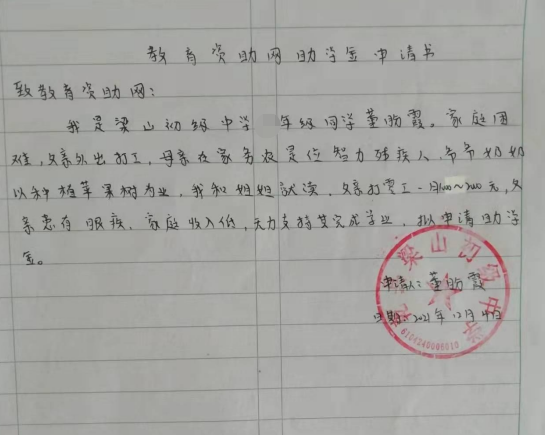 教育资助网助学金申请书
致教育资助网：
我是梁山初级中学 年级同学董盼霞。家庭困
难，父亲外出打工，母亲在家务农是位智力残疾人，爷爷奶奶
以种植苹果树为业，我和姐姐就读，父亲打零工一月1600~2000元，父
亲患有眼疾，家庭收入低，无力支持其完成学业，拟申请助学
金。
申请人：董盼霞
日期：2021年12月4日
梁山初级中学